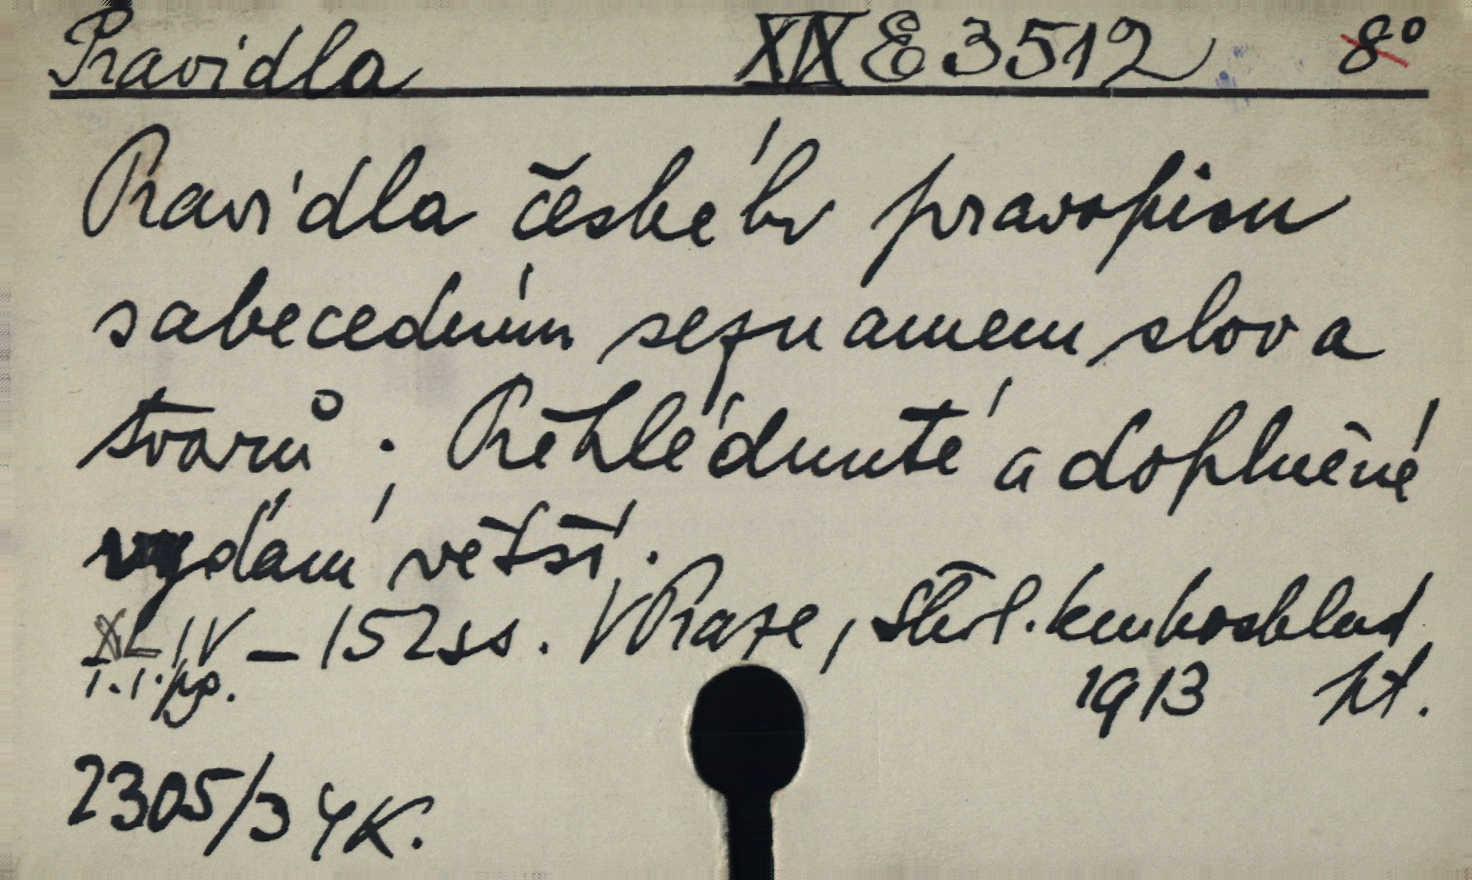 Pravidla XIX E 3512 8°
Pravidla českého pravopisu
s abecedním seznamem slov a
tvarů. Přehlédnuté a doplněné
vydání větší.
XLIV - 152 ss. V Praze, Škol. knihosklad
1913 pt.
2305/34 K.